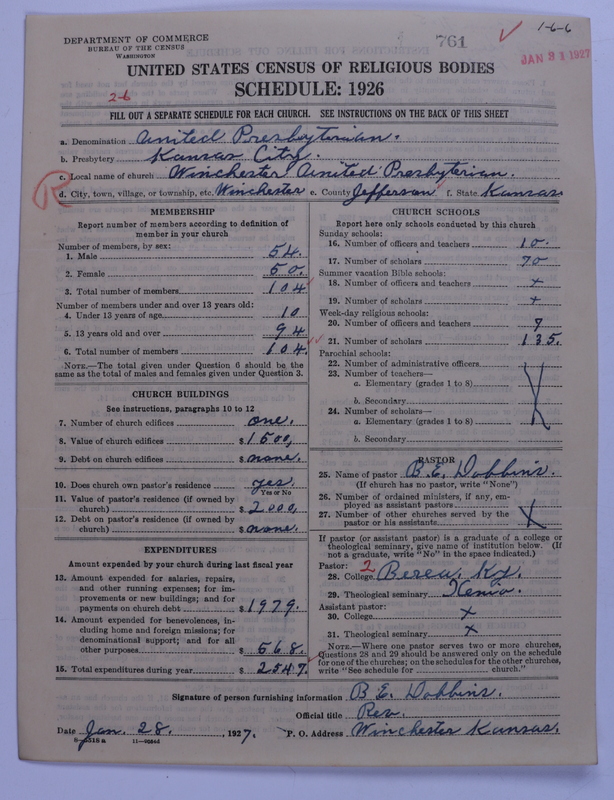 1-6-6
761
JAN 31 1927
DEPARTMENT OF COMMERCE
BUREAU OF THE CENSUS
WASHINGTON
UNITED STATES CENSUS OF RELIGIOUS BODIES
SCHEDULE: 1926
2-6
FILL OUT A SEPARATE SCHEDULE FOR EACH CHURCH. SEE INSTRUCTIONS ON THE BACK OF THIS SHEET
a. Denomination United Presbyterian.
b. Presbytery Kansas City.
c. Local name of church Winchester United Presbyterian.
R
d. City, town, village, or township, etc. Winchester e. County Jefferson f. State Kansas
MEMBERSHIP
Report number of members according to definition of
member in your church
Number of members, by sex:
1. Male 54.
2. Female 50.
3. Total number of members 104
Number of members under and over 13 years old:
4. Under 13 years of age 10
5. 13 years old and over 94
6. Total number of members 104.
NOTE.—The total given under Question 6 should be the
same as the total of males and females given under Question 3.
CHURCH BUILDINGS
See instructions, paragraphs 10 to 12
7. Number of church edifices one.
8. Value of church edifices $1500,
9. Debt on church edifices $none.
10. Does church own pastor's residence yes
Yes or No
11. Value of pastor's residence (if owned by
church) $2000,
12. Debt on pastor's residence (if owned by
church) $none.
EXPENDITURES
Amount expended by your church during last fiscal year
13. Amount expended for salaries, repairs,
and other running expenses; for im-
provements or new buildings; and for
payments on church debt $1979.
14. Amount expended for benevolences, in-
cluding home and foreign missions; for
denominational support; and for all
other purposes $568.
15. Total expenditures during year $2547.
CHURCH SCHOOLS
Report here only schools conducted by this church
Sunday schools:
16. Number of officers and teachers 10.
17. Number of scholars 70
Summer vacation Bible schools:
18. Number of officers and teachers x
19. Number of scholars x
Week-day religious schools:
20. Number of officers and teachers 7
21. Number of scholars 135.
Parochial schools:
22. Number of administrative officers
23. Number of teachers—
a. Elementary (grades 1 to 8)
b. Secondary
24. Number of scholars—
a. Elementary (grades 1 to 8)
b. Secondary
PASTOR
25. Name of pastor B. E. Dobbins.
(If church has no pastor, write "None")
26. Number of ordained ministers, if any, em-
ployed as assistant pastors
27. Number of other churches served by the
pastor or his assistants X
If pastor (or assistant pastor) is a graduate of a college or
theological seminary, give name of institution below. (If
not a graduate, write "No" in the space indicated.)
Pastor: 2
28. College Berea. Ky.
29. Theological seminary Xenia.
Assistant pastor:
30. College x
31. Theological seminary x
NOTE.—Where one pastor serves two or more churches,
Questions 28 and 29 should be answered only on the schedule
for one of the churches; on the schedules for the other churches,
write "See schedule for church."
Signature of person furnishing information B. E. Dobbins.
Official title Rev.
Date Jan. 28. , 1927. P. O. Address Winchester Kansas.
11—